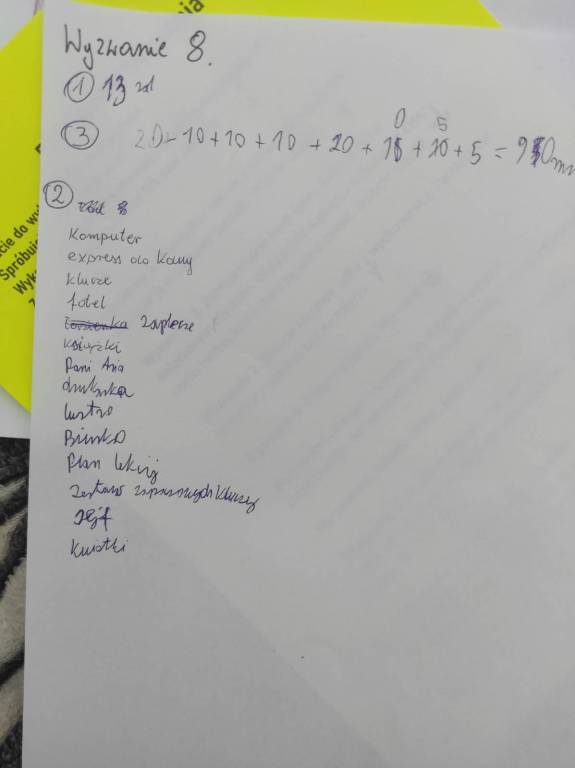 ia
Wyzwanie 8.
① 13 zł
0 5
③ 20 - 10 + 10 + 10 + 20 + 15 + 10 + 5 = 90 mn
②
cie do wy
Spróbuj
Wyk
Komputer
express do kawy
klucze
fotel
zaplecze
książki
Pani Ania
drukarka
lustro
Biurko
Plan lekcji
Zestaw zapasowych kluczy
sejf
kwiatki